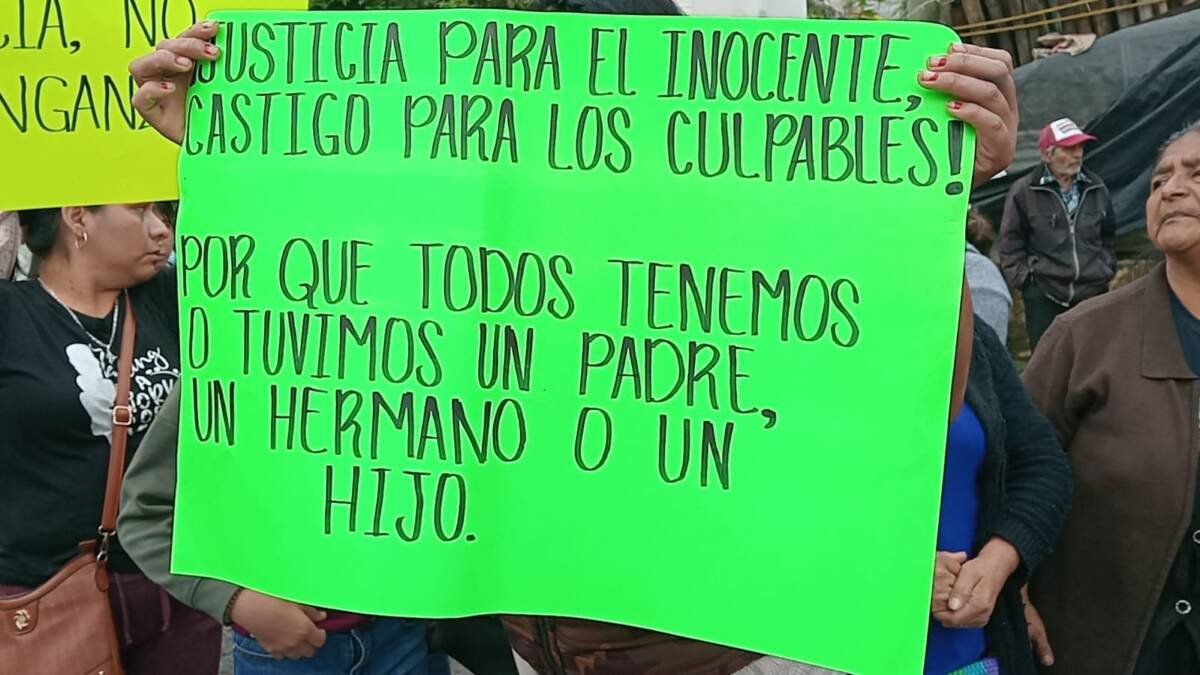 NO
JUSTICIA PARA EL INOCENTE,
CASTIGO PARA LOS CULPABLES!
POR QUE TODOS TENEMOS
O TUVIMOS UN PADRE,
UN HERMANO O UN
HIJO.